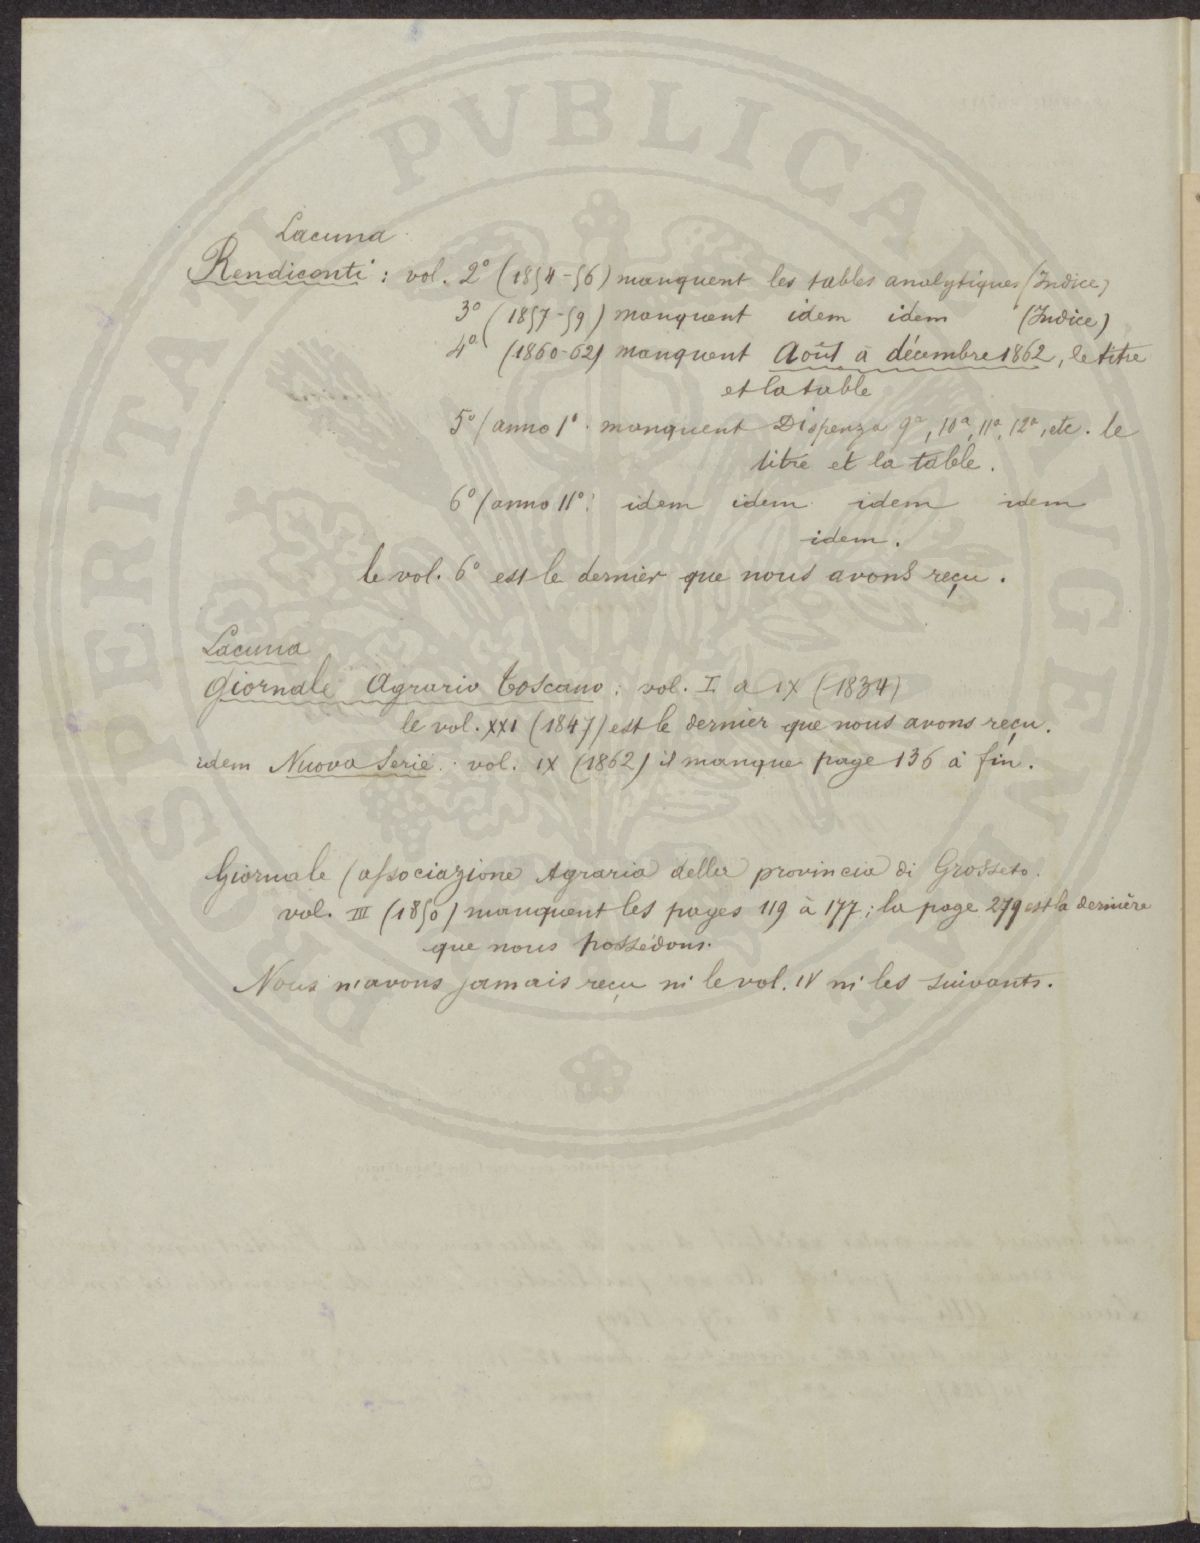 Lacuna
Rendiconti : vol. 2º (1854-56) manquent les tables analytiques (Indice)
3º (1857-59) manquent idem idem (Indice)
4º (1860-62) manquent Août à décembre 1862, le titre
et la table
5º (anno 1º. manquent Dispenza 9ª, 10ª, 11ª, 12ª, etc. le
titre et la table.
6º (anno 11º: idem idem idem idem
idem.
le vol. 6º est le dernier que nous avons reçu.
Lacuna
Giornale Agrario Toscano : vol. I à IX (-1834)
le vol. XXI (1847) est le dernier que nous avons reçu.
idem Nuova Serie : vol. IX (1862) il manque page 136 à fin.
Giornale (associazione Agraria della provincia di Grosseto.
vol. III (1850) manquent les pages 119 à 177; la page 279 est la dernière
que nous possédons.
Nous n'avons jamais reçu ni le vol. IV ni les suivants.